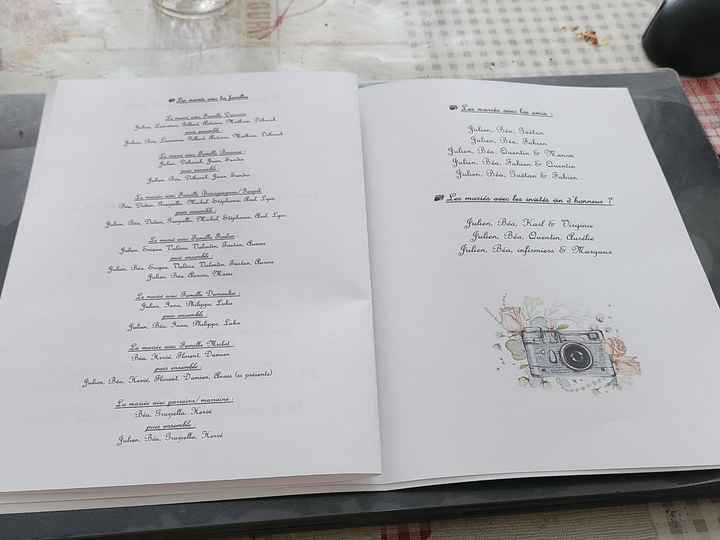 Les mariés avec les familles
Le marié avec Famille
Julien, Laurence, Gilbert, Mathieu, Déborah
puis ensemble :
Julien, Béa, Laurence, Gilbert, Mathieu, Déborah
Le marié avec Famille
Julien, Déborah, Jean, Sandra
puis ensemble :
Julien, Béa, Déborah, Jean, Sandra
La mariée avec Famille
Béa, Dylan, Grazyella, Michel, Stéphanie, Axel, Lya
puis ensemble :
Julien, Béa, Dylan, Grazyella, Michel, Stéphanie, Axel, Lya
Le marié avec Famille
Julien, Valérie, Valentin, Gaëtan, Aurore
puis ensemble :
Julien, Béa, Valérie, Valentin, Gaëtan, Aurore
Julien, Béa, Aurore,
Le marié avec Famille
Julien, Philippe, Luka
puis ensemble :
Julien, Béa, Philippe, Luka
La mariée avec Famille Michel :
Béa, Hervé, Florent, Damien
puis ensemble :
Julien, Béa, Hervé, Florent, Damien, Alexis (si présents)
La mariée avec parrains/marraines :
Béa, Grazyella, Hervé
puis ensemble :
Julien, Béa, Grazyella, Hervé
Les mariés avec les amis :
Julien, Béa, Gaëtan
Julien, Béa, Fabien
Julien, Béa, Quentin & Manon
Julien, Béa, Fabien & Quentin
Julien, Béa, Gaëtan & Fabien
Les mariés avec les invités vin d'honneur ?
Julien, Béa, Karl & Virginie
Julien, Béa, Quentin, Aurélie
Julien, Béa, infirmiers & Margaux